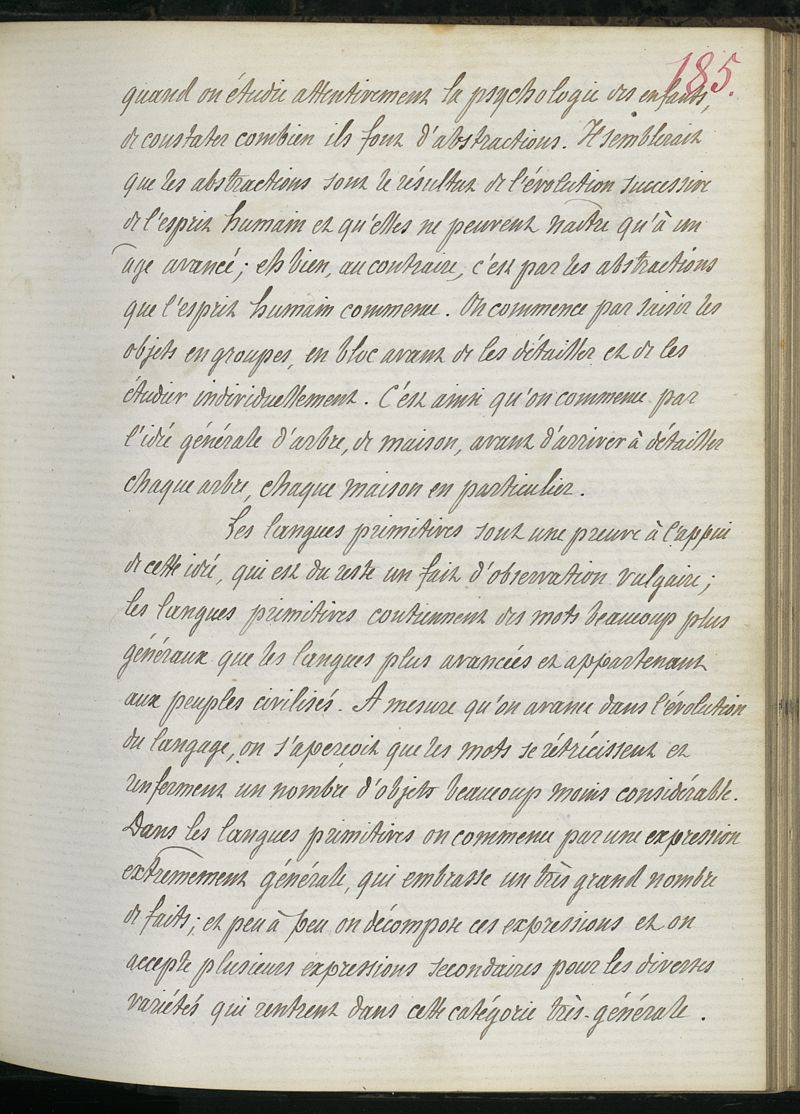 185.
quand on étudie attentivement la psychologie des enfants,
de constater combien ils font d'abstractions. Il semblerait
que les abstractions sont le résultat de l'évolution successive
de l'esprit humain et qu'elles ne peuvent naître qu'à un
âge avancé ; eh bien, au contraire, c'est par les abstractions
que l'esprit humain commence. On commence par saisir les
objets en groupes, en bloc avant de les détailler et de les
étudier individuellement. C'est ainsi qu'on commence par
l'idée générale d'arbre, de maison, avant d'arriver à détailler
chaque arbre, chaque maison en particulier.
Les langues primitives sont une preuve à l'appui
de cette idée, qui est du reste un fait d'observation vulgaire ;
les langues primitives contiennent des mots beaucoup plus
généraux que les langues plus avancées et appartenant
aux peuples civilisés. A mesure qu'on avance dans l'évolution
du langage, on s'aperçoit que les mots se rétrécissent et
renferment un nombre d'objets beaucoup moins considérable.
Dans les langues primitives on commence par une expression
extrêmement générale, qui embrasse un très grand nombre
de faits ; et peu à peu on décompose ces expressions et on
accepte plusieurs expressions secondaires pour les diverses
variétés qui rentrent dans cette catégorie très-générale.